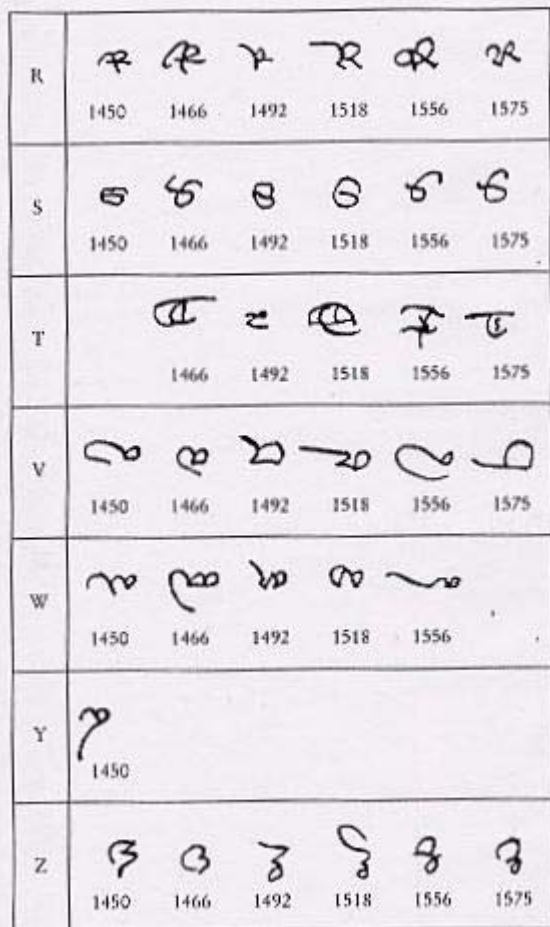 R
1450 1466 1492 1518 1556 1575
S
1450 1466 1492 1518 1556 1575
T
1466 1492 1518 1556 1575
V
1450 1466 1492 1518 1556 1575
W
1450 1466 1492 1518 1556
Y
1450
Z
1450 1466 1492 1518 1556 1575